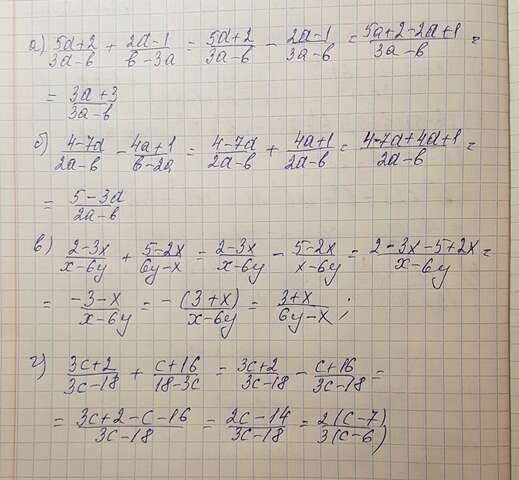 а) (5a+2)/(3a-в) + (2a-1)/(в-3a) = (5a+2)/(3a-в) - (2a-1)/(3a-в) = (5a+2-2a+1)/(3a-в) =
= (3a+3)/(3a-в)
б) (4-7a)/(2a-в) - (4a+1)/(в-2a) = (4-7a)/(2a-в) + (4a+1)/(2a-в) = (4-7a+4a+1)/(2a-в) =
= (5-3a)/(2a-в)
в) (2-3x)/(x-6y) + (5-2x)/(6y-x) = (2-3x)/(x-6y) - (5-2x)/(x-6y) = (2-3x-5+2x)/(x-6y) =
= (-3-x)/(x-6y) = (-(3+x))/(x-6y) = (3+x)/(6y-x);
г) (3c+2)/(3c-18) + (c+16)/(18-3c) = (3c+2)/(3c-18) - (c+16)/(3c-18) =
= (3c+2-c-16)/(3c-18) = (2c-14)/(3c-18) = (2(c-7))/(3(c-6))